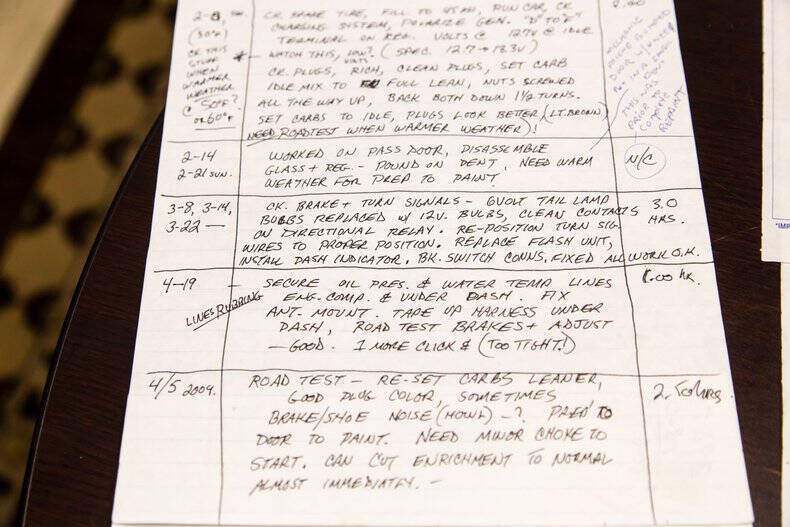 2-8, CK. SPARE TIRE, FILL TO 45 PSI, RUN CAR, CK
(30°) CHARGING SYSTEM, POLARIZE GEN. "B" TO "F"
TERMINAL ON REG. VOLTS @ 12.7V @ IDLE
CK THIS STUFF WHEN WARMER WEATHER @ 50°F? OR 60°F
* WATCH THIS, LOW? VOLTS (SPEC. 12.7 → 13.3V)
CK. PLUGS, RICH, CLEAN PLUGS, SET CARB
IDLE MIX TO FULL LEAN, NUTS SCREWED
ALL THE WAY UP, BACK BOTH DOWN 1 1/2 TURNS.
SET CARBS TO IDLE, PLUGS LOOK BETTER (LT. BROWN)
NEED ROADTEST WHEN WARMER WEATHER)!
2-14 WORKED ON PASS DOOR, DISASSEMBLE N/C
2-21 SUN. GLASS + REG. - POUND ON DENT, NEED WARM
WEATHER FOR PREP TO PAINT
3-8, 3-14, CK. BRAKE + TURN SIGNALS - 6VOLT TAIL LAMP 3.0
3-22 — BULBS REPLACED W/ 12V. BULBS, CLEAN CONTACTS HRS.
ON DIRECTIONAL RELAY. RE-POSITION TURN SIG.
WIRES TO PROPER POSITION. REPLACE FLASH UNIT,
INSTALL DASH INDICATOR, BK. SWITCH CONNS, FIXED ALL WORK O.K.
4-19 - SECURE OIL PRES. & WATER TEMP LINES 1.00 HR.
LINES RUBBING ENG. COMP. & UNDER DASH. FIX
ANT. MOUNT. TAPE UP HARNESS UNDER
DASH, ROAD TEST BRAKES + ADJUST
- GOOD. 1 MORE CLICK & (TOO TIGHT!)
4/5 2009. ROAD TEST - RE-SET CARBS LEANER,
GOOD PLUG COLOR, SOMETIMES 2. HRS.
BRAKE/SHOE NOISE (HOWL) -? PREP TO
DOOR TO PAINT. NEED MINOR CHOKE TO
START. CAN CUT ENRICHMENT TO NORMAL
ALMOST IMMEDIATELY. -
*IMP